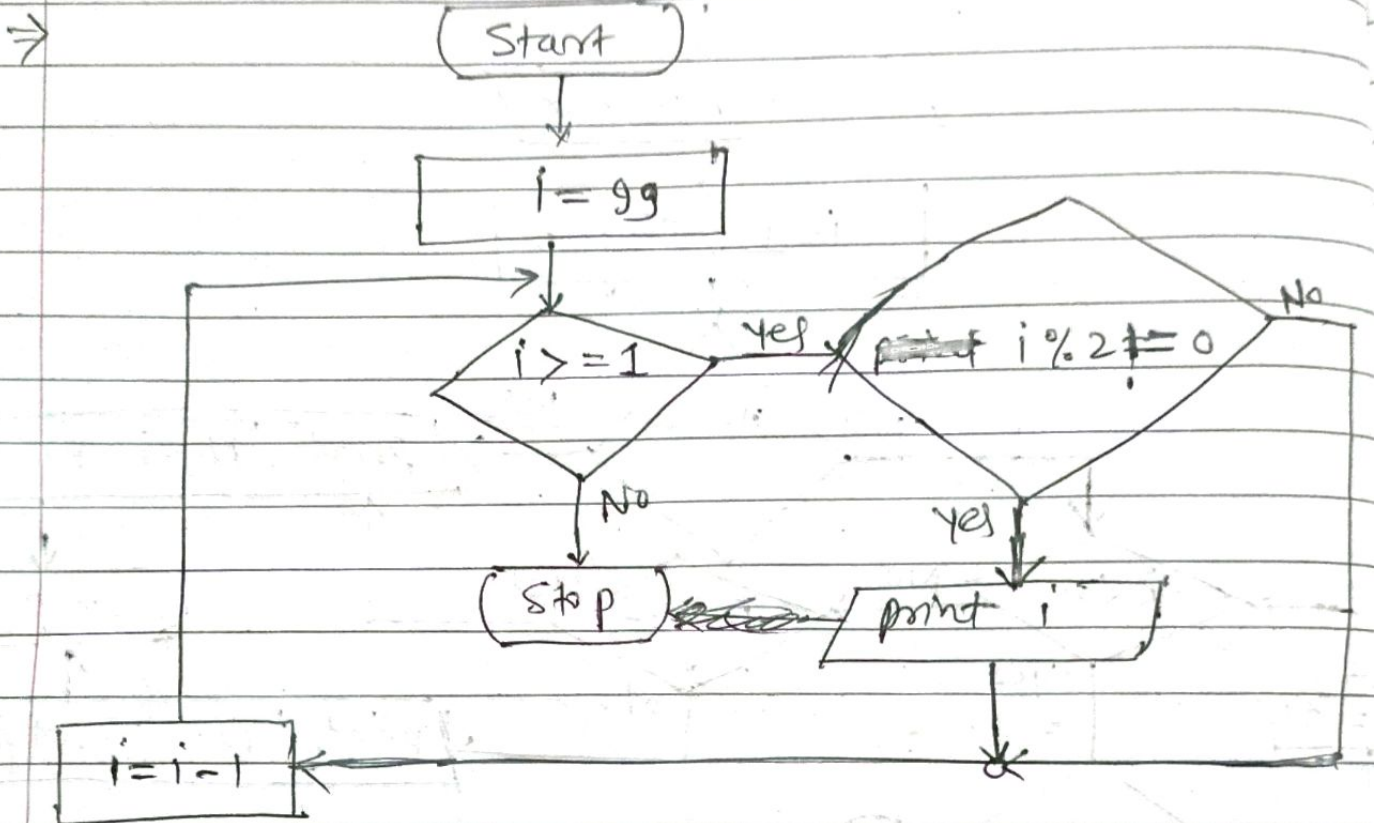 ⇒ Start
i = 99
i >= 1
Yes
i % 2 != 0
No
No
Yes
Stop
print i
i = i - 1